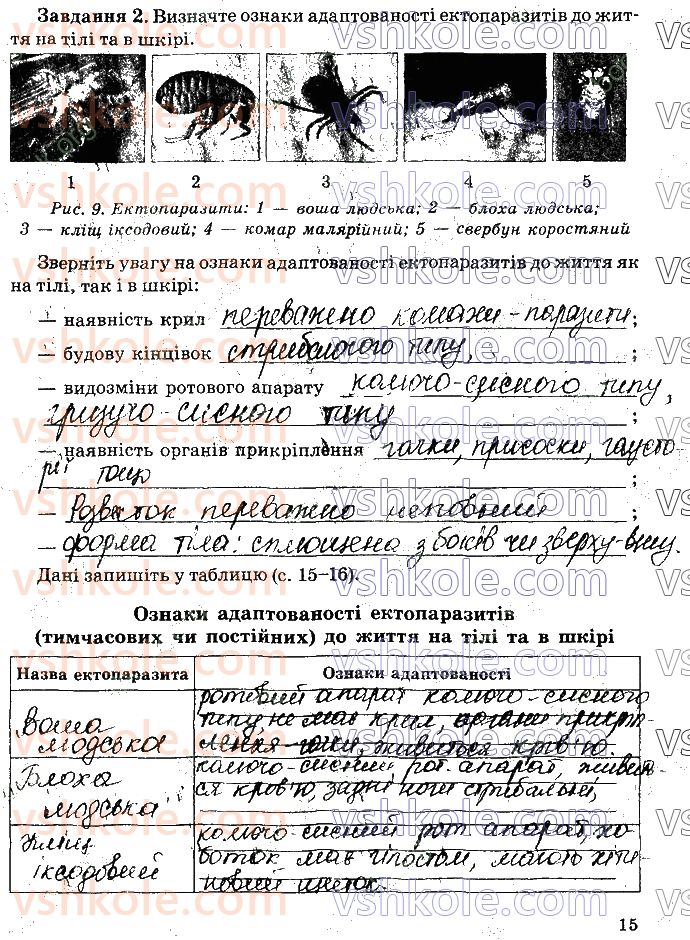 Завдання 2. Визначте ознаки адаптованості ектопаразитів до жит-
тя на тілі та в шкірі.
1 2 3 4 5
Рис. 9. Ектопаразити: 1 — воша людська; 2 — блоха людська;
3 — кліщ іксодовий; 4 — комар малярійний; 5 — свербун коростяний
Зверніть увагу на ознаки адаптованості ектопаразитів до життя як
на тілі, так і в шкірі:
— наявність крил переважно комахи-паразити;
— будову кінцівок стрибаючого типу, ;
— видозміни ротового апарату колючо-сисного типу,
гризучо-сисного типу ;
— наявність органів прикріплення гачки, присоски, гаусто-
рії тощо ;
— Розвиток переважно неповний ;
— форма тіла: сплющена з боків чи зверху-вниз.
Дані запишіть у таблицю (с. 15–16).
Ознаки адаптованості ектопаразитів
(тимчасових чи постійних) до життя на тілі та в шкірі
Назва ектопаразита Ознаки адаптованості
Воша людська
ротовий апарат колючо-сисного
типу, не має крил, органи прикріп-
лення-гачки, живиться кров'ю.
Блоха людська
колючо-сисний рот. апарат, живить-
ся кров'ю, задні ноги стрибальні,
Кліщ іксодовий
колючо-сисний рот апарат, хо-
боток має гіпостом, мають хіти-
новий щиток.
15
vshkole.com